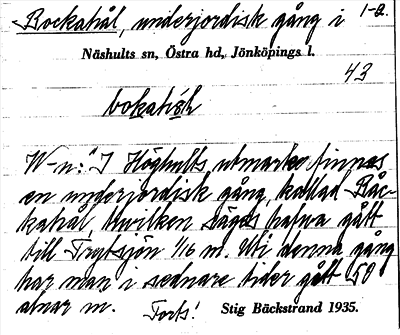 Bockahål, underjordisk gång i 1-2.
Näshults sn, Östra hd, Jönköpings l.
43
W-n: "I Höghults utmarke finnes
en underjordisk gång, kallad Båc-
kahål, hvilken säges hafva gått
till Frytsjön 1/16 m. Uti denna gång
har man i sednare tider gått 50
alnar m. Forts! Stig Bäckstrand 1935.